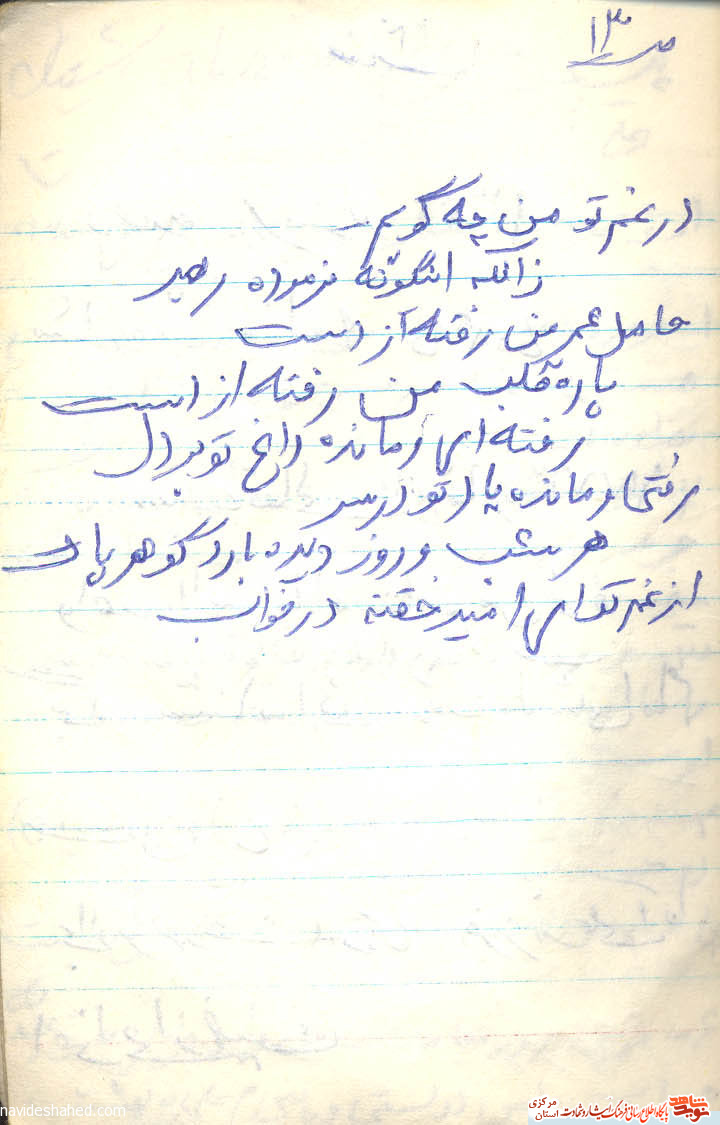 ص ۱۳
در غم تو من چه گویم
زانکه اینگونه فرموده رهبر
حاصل عمر من رفته از دست
پاره قلب من رفته از دست
رفته ای و مانده داغ تو بر دل
رفتی و مانده یاد تو در سر
هر شب و روز دیده بارد گوهر پاک
از غم تو ای امید خفته در خواب
navideshahed.com
نوید شاهد
پایگاه اطلاع رسانی فرهنگ ایثار و شهادت
استان مرکزی